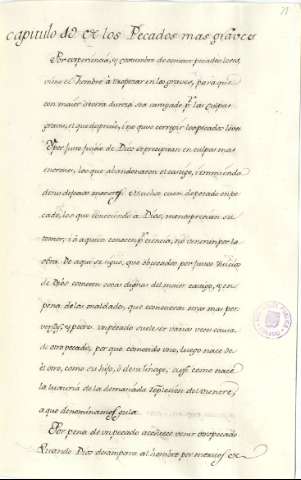 capitulo 10 de los Pecados mas graves
Por experiencia, y costumbre de cometer pecados leves,
viene el hombre à tropezar en los graves, para que
con maior istoria dureza sea castigado pr. las culpas
graves, el que despreciò, è no quiso corregir los pecados leves.
Por justo juicio de Dios se precipitan en culpas mas
enormes, los que abandonaron el castigo, è remission
de sus defectos Muchos caen de pecado en pe-
cado, los que conociendo à Dios, menosprecian su
temor, i à quien conocen pr. ciencia, no veneran por la
obra. De aqui se sigue, que obcecados por justo Juicio
de Dios cometen cosas dignas del maior castigo, y en
pena de las maldades, que cometieron otro mas per-
verso, y peor. Un pecado suele ser varias veces causa
de otro pecado, por que cometido uno, luego nace de
èl otro, como su hijo, ò de su linage, assi como nace
la luxuria de la demasiada repleción del vientre,
a que denominamos gula.
Por pena de un pecado acontece venir otro pecado
Quando Dios desampara al hombre por merecer